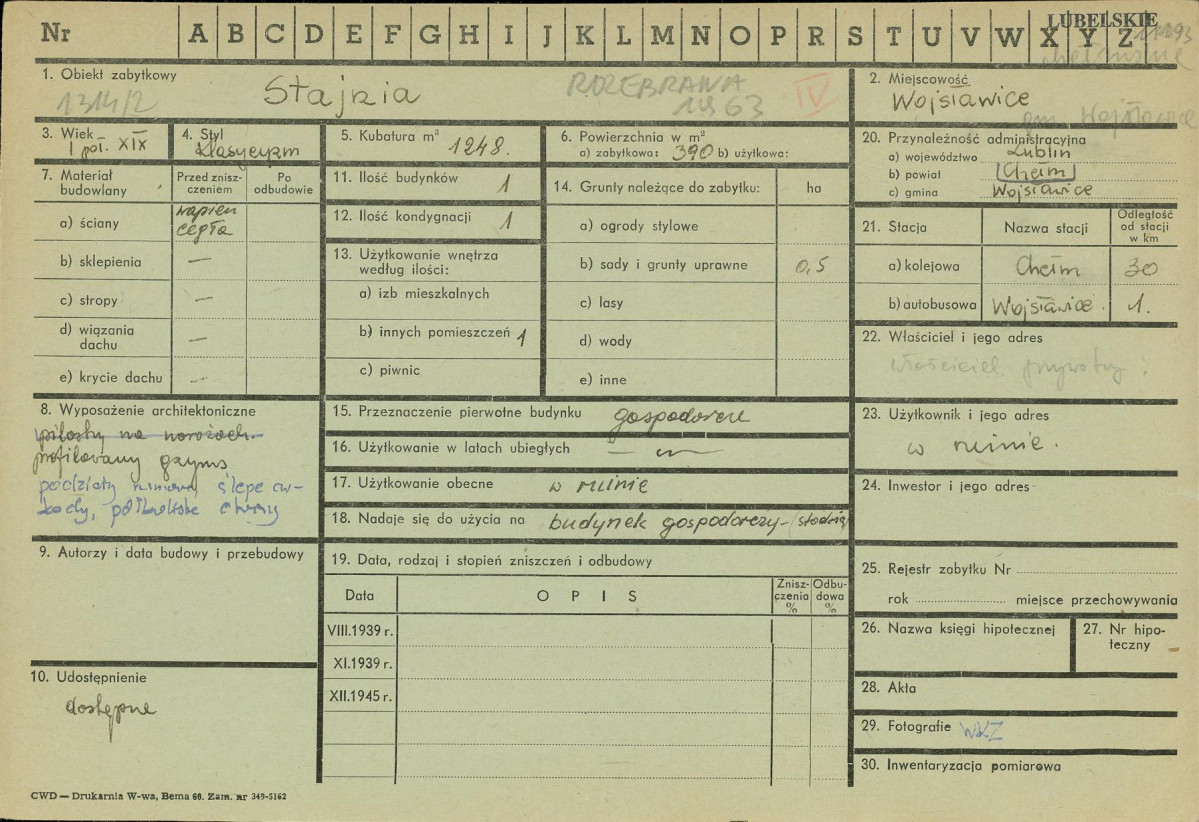 Nr A B C D E F G H I J K L M N O P R S T U V W X Y Z
LUBELSKIE
1. Obiekt zabytkowy
1314/2
Stajnia
ROZEBRANA
1963
IV
2. Miejscowość
Wojsławice
gm. Wojsławice
3. Wiek
I poł. XIX
4. Styl
klasycyzm
5. Kubatura m³ 1248.
6. Powierzchnia w m²
a) zabytkowa: 390 b) użytkowa:
7. Materiał budowlany
Przed zniszczeniem
Po odbudowie
a) ściany
wapień
cegła
b) sklepienia —
c) stropy —
d) wiązania dachu —
e) krycie dachu —
8. Wyposażenie architektoniczne
pilastry na narożach
profilowany gzyms
podziały ramowe, ślepe ar-
kady, półkoliste otwory
9. Autorzy i data budowy i przebudowy
10. Udostępnienie
dostępne
11. Ilość budynków 1
12. Ilość kondygnacji 1
13. Użytkowanie wnętrza
według ilości:
a) izb mieszkalnych
b) innych pomieszczeń 1
c) piwnic
14. Grunty należące do zabytku: ha
a) ogrody stylowe
b) sady i grunty uprawne 0,5
c) lasy
d) wody
e) inne
15. Przeznaczenie pierwotne budynku gospodarcze
16. Użytkowanie w latach ubiegłych —
17. Użytkowanie obecne w ruinie
18. Nadaje się do użycia na budynek gospodarczy - (stodoła)
19. Data, rodzaj i stopień zniszczeń i odbudowy
Data
O P I S
Zniszczenia %
Odbudowa %
VIII.1939 r.
XI.1939 r.
XII.1945 r.
20. Przynależność administracyjna
a) województwo Lublin
b) powiat Chełm
c) gmina Wojsławice
21. Stacja
Nazwa stacji
Odległość od stacji w km
a) kolejowa Chełm 30
b) autobusowa Wojsławice 1.
22. Właściciel i jego adres
właściciel prywatny
23. Użytkownik i jego adres
w ruinie.
24. Inwestor i jego adres
25. Rejestr zabytku Nr
rok miejsce przechowywania
26. Nazwa księgi hipotecznej
27. Nr hipoteczny
28. Akta
29. Fotografie WKZ
30. Inwentaryzacja pomiarowa
CWD — Drukarnia W-wa, Bema 60. Zam. nr 349-5162